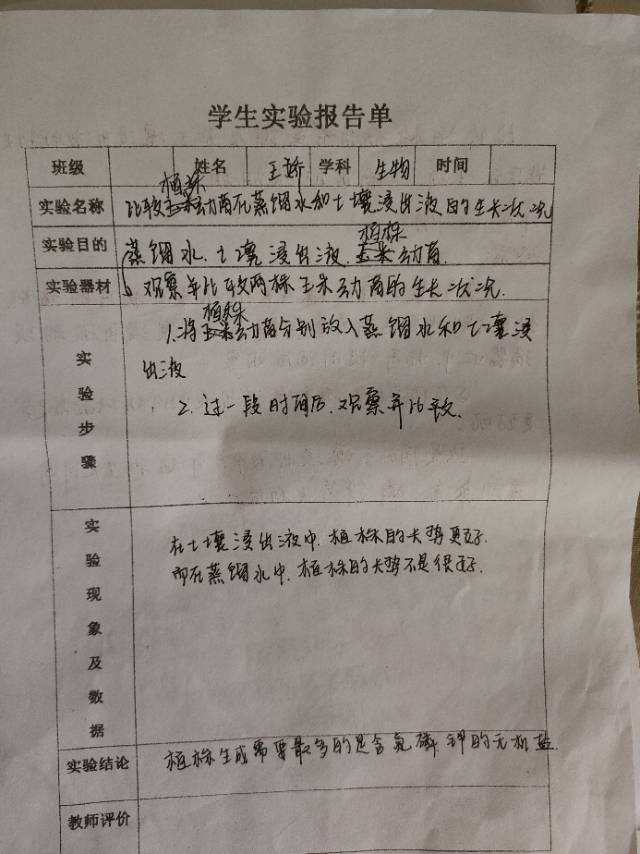 学生实验报告单
班级 姓名 王娇 学科 生物 时间
植株
实验名称 比较玉米幼苗在蒸馏水和土壤浸出液的生长状况
植株
实验目的 蒸馏水、土壤浸出液、玉米幼苗
实验器材 观察并比较两株玉米幼苗的生长状况.
植株
1.将玉米幼苗分别放入蒸馏水和土壤浸
出液
2. 过一段时间后,观察并比较.
实验步骤
在土壤浸出液中,植株的长势更好.
而在蒸馏水中,植株的长势不是很好.
实验现象及数据
实验结论 植株生成需要最多的是含氮磷钾的无机盐.
教师评价